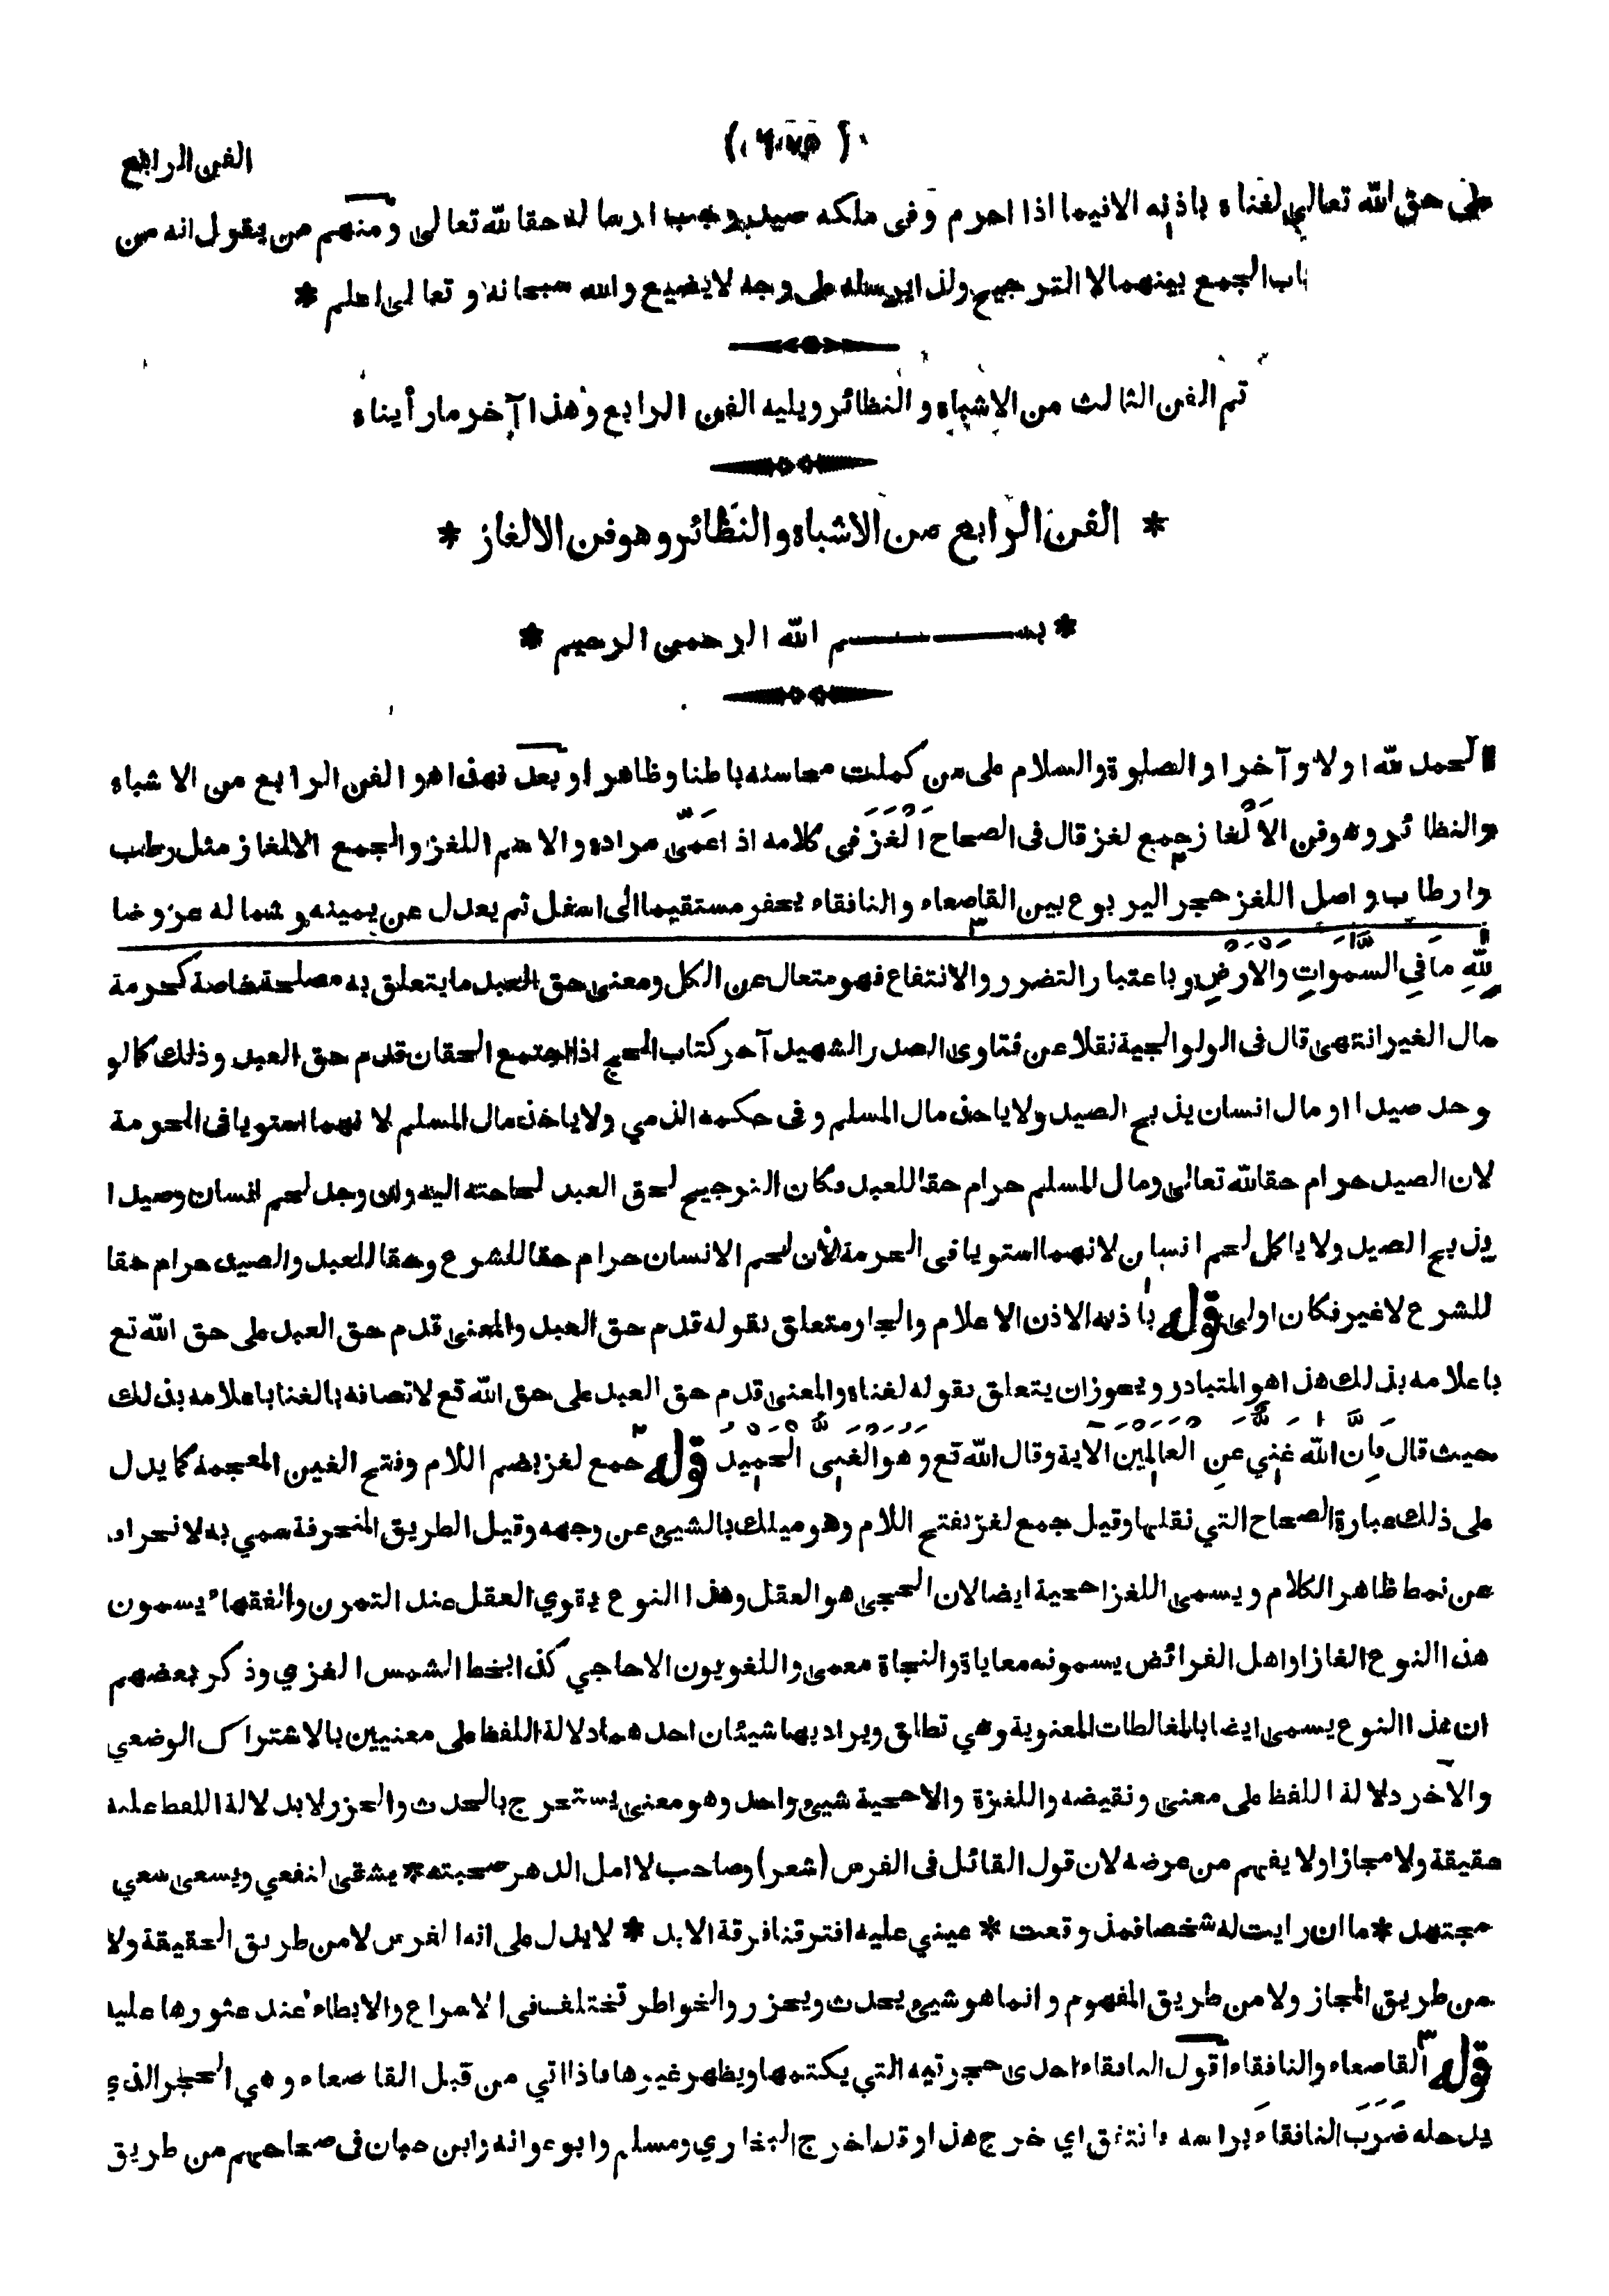 الفن الرابع
على حق الله تعالى لغناه باذنه الا فيما اذا احرم وفى ملكه صيد وجب ارساله حقا لله تعالى ومنهم من يقول انه من
باب الجمع بينهما لا الترجيح ولذا يرسله على وجه لا يضيع والله سبحانه وتعالى اعلم *
تم الفن الثالث من الاشباه والنظائر ويليه الفن الرابع وهذا آخر ما رأيناه
* الفن الرابع من الاشباه والنظائر وهو فن الالغاز *
* بســـــــم الله الرحمن الرحيم *
الحمد لله اولا وآخرا والصلوة والسلام على من كملت محاسنه باطنا وظاهرا وبعد فهذا هو الفن الرابع من الاشباه
والنظائر وهو فن الالغاز جمع لغز قال فى الصحاح اَلْغَزَ فى كلامه اذا عمّى مراده والاسم اللغز والجمع الالغاز مثل رطب
وارطاب واصل اللغز حجر اليربوع بين القاصعاء والنافقاء يحفر مستقيما الى اسفل ثم يعدل عن يمينه وشماله عروضا
لِلّهِ مَا فِي السَّمٰوَاتِ وَالْاَرْضِ وباعتبار التضرر والانتفاع فهو متعال عن الكل ومعنى حق العبد ما يتعلق به مصلحة خاصة كحرمة
مال الغير انتهى قال فى الولوالجية نقلا عن فتاوى الصدر الشهيد آخر كتاب الحج اذا اجتمع الحقان قدم حق العبد وذلك كما لو
وجد صيدا او مال انسان يذبح الصيد ولا ياخذ مال المسلم وفى حكمه الذمي ولا ياخذ مال المسلم لا نهما استويا فى الحرمة
لان الصيد حرام حقا لله تعالى ومال المسلم حرام حقا للعبد فكان الترجيح لحق العبد لحاجته اليه وان وجد لحم انسان وصيدا
يذبح الصيد ولا ياكل لحم انسان لانهما استويا فى الحرمة لأن لحم الانسان حرام حقا للشرع وحقا للعبد والصيد حرام حقا
للشرع لا غير فكان اولى قوله باذنه الاذن الاعلام والجار متعلق بقوله قدم حق العبد والمعنى قدم حق العبد على حق الله تع
باعلامه بذلك هذا هو المتبادر ويجوز ان يتعلق بقوله لغناه والمعنى قدم حق العبد على حق الله تع لاتصافه بالغنا باعلامه بذلك
حيث قال فَاِنَّ اللّٰهَ غَنِيٌّ عَنِ الْعَالَمِيْنَ الآية وقال الله تع وَهُوَ الْغَنِىُّ الْحَمِيْدُ قوله جمع لغز بضم اللام وفتح الغين المعجمة كما يدل
على ذلك عبارة الصحاح التي نقلها وقيل جمع لغز بفتح اللام وهو ميلك بالشيئ عن وجهه وقيل الطريق المنحرفة سمي به لانحرافه
عن نمط ظاهر الكلام ويسمى اللغز احجية ايضا لان الحجى هو العقل وهذا النوع يقوي العقل عند التمرن والفقهاء يسمون
هذا النوع الغازا واهل الفرائض يسمونه معاياة والنحاة معمى واللغويون الاحاجي كذا بخط الشمس الغزي وذكر بعضهم
ان هذا النوع يسمى ايضا بالمغالطات المعنوية وهي تطلق ويراد بها شيئان احدهما دلالة اللفظ على معنيين بالاشتراك الوضعي
والآخر دلالة اللفظ على معنى ونقيضه واللغزة والاحجية شيئ واحد وهو معنى يستخرج بالحدث والحزر لا بد لالة اللفظ عليه
حقيقة ولا مجازا ولا يفهم من عرضه لان قول القائل فى الفرس (شعر) وصاحب لا امل الدهر صحبته * يشقى لنفعي ويسعى سعي
مجتهد * ما ان رايت له شخصا فمذ وقعت * عيني عليه افترقنا فرقة الابد * لا يدل على انه الفرس لا من طريق الحقيقة ولا
من طريق المجاز ولا من طريق المفهوم وانما هو شيئ يحدث ويحزر والخواطر تختلف فى الاسراع والابطاء عند عثورها عليه
قوله القاصعاء والنافقاء اقول النافقاء احدى حجرتيه التي يكتمها ويظهر غيرها فاذا اتي من قبل القاصعاء وهي الحجر الذي
يدخله ضَرَبَ النافقاءَ براسه فانتفق اي خرج هذا وقد اخرج البخاري ومسلم وابو عوانه وابن حبان فى صحاحهم من طريق